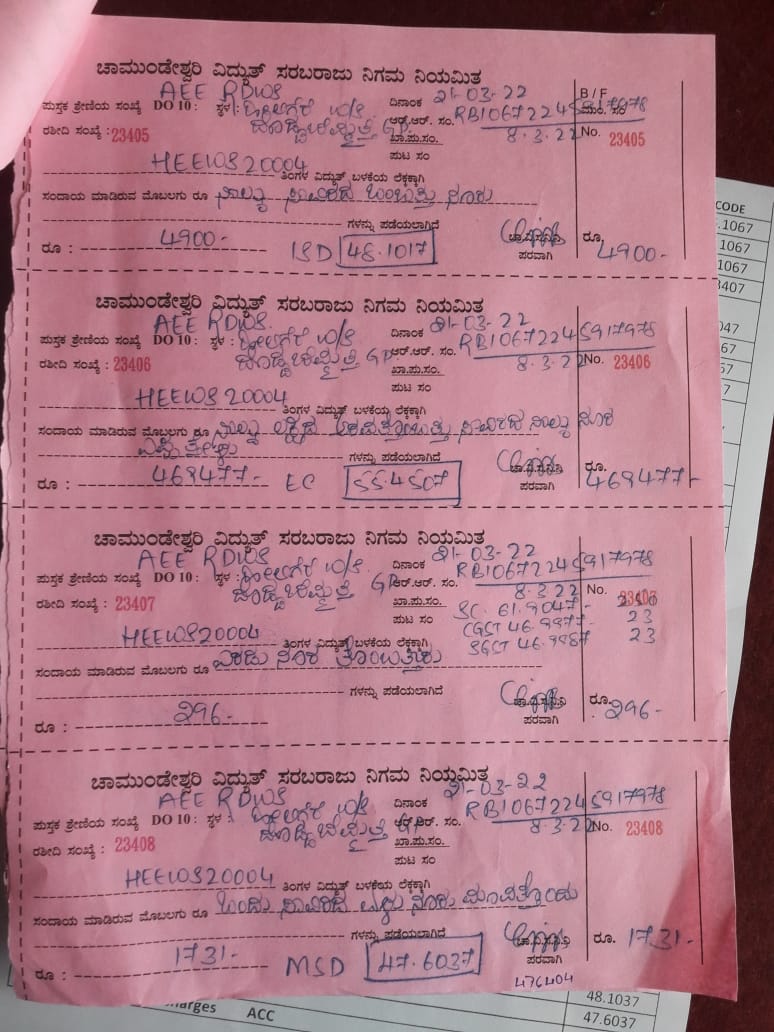 ಚಾಮುಂಡೇಶ್ವರಿ ವಿದ್ಯುತ್ ಸರಬರಾಜು ನಿಗಮ ನಿಯಮಿತ
AEE RDWS ದಿನಾಂಕ 21-03-22 B/F
ಪುಸ್ತಕ ಶ್ರೇಣಿಯ ಸಂಖ್ಯೆ DO 10 : ಸ್ಥಳ : ಆರ್.ಆರ್. ಸಂ. RB10672245917978
ರಶೀದಿ ಸಂಖ್ಯೆ : 23405 GP ಖಾ.ಪು.ಸಂ. 8.3.22 No. 23405
ಪುಟ ಸಂ
HEEWS20004 ತಿಂಗಳ ವಿದ್ಯುತ್ ಬಳಕೆಯ ಲೆಕ್ಕಕ್ಕಾಗಿ
ಸಂದಾಯ ಮಾಡಿರುವ ಮೊಬಲಗು ರೂ ನಾಲ್ಕು ಸಾವಿರದ ಒಂಬತ್ತು ನೂರು
ಗಳನ್ನು ಪಡೆಯಲಾಗಿದೆ
ರೂ : 4900- ISD 48.1017 ಪರವಾಗಿ ರೂ. 4900-
ಚಾಮುಂಡೇಶ್ವರಿ ವಿದ್ಯುತ್ ಸರಬರಾಜು ನಿಗಮ ನಿಯಮಿತ
AEE RDWS ದಿನಾಂಕ 21-03-22
ಪುಸ್ತಕ ಶ್ರೇಣಿಯ ಸಂಖ್ಯೆ DO 10 : ಸ್ಥಳ : ಆರ್.ಆರ್. ಸಂ. RB10672245917978
ರಶೀದಿ ಸಂಖ್ಯೆ : 23406 GP ಖಾ.ಪು.ಸಂ. 8.3.22 No. 23406
ಪುಟ ಸಂ
HEEWS20004 ತಿಂಗಳ ವಿದ್ಯುತ್ ಬಳಕೆಯ ಲೆಕ್ಕಕ್ಕಾಗಿ
ಸಂದಾಯ ಮಾಡಿರುವ ಮೊಬಲಗು ರೂ ನಾಲ್ಕು ಲಕ್ಷದ ಅರವತ್ತೊಂಬತ್ತು ಸಾವಿರದ ನಾಲ್ಕು ನೂರ
ಎಪ್ಪತ್ತೇಳು ಗಳನ್ನು ಪಡೆಯಲಾಗಿದೆ
ರೂ : 469477- EC 55.4507 ಪರವಾಗಿ ರೂ. 469477-
ಚಾಮುಂಡೇಶ್ವರಿ ವಿದ್ಯುತ್ ಸರಬರಾಜು ನಿಗಮ ನಿಯಮಿತ
AEE RDWS ದಿನಾಂಕ 21-03-22
ಪುಸ್ತಕ ಶ್ರೇಣಿಯ ಸಂಖ್ಯೆ DO 10 : ಸ್ಥಳ : ಆರ್.ಆರ್. ಸಂ. RB10672245917978
ರಶೀದಿ ಸಂಖ್ಯೆ : 23407 GP ಖಾ.ಪು.ಸಂ. 8.3.22 No. 23407
ಪುಟ ಸಂ SC. 61.9047- 250
CGST 46.9977- 23
HEEWS20004 ತಿಂಗಳ ವಿದ್ಯುತ್ ಬಳಕೆಯ ಲೆಕ್ಕಕ್ಕಾಗಿ SGST 46.9987 23
ಸಂದಾಯ ಮಾಡಿರುವ ಮೊಬಲಗು ರೂ ಎರಡು ನೂರ ತೊಂಬತ್ತಾರು
ಗಳನ್ನು ಪಡೆಯಲಾಗಿದೆ
ರೂ : 296- ಪರವಾಗಿ ರೂ. 296-
ಚಾಮುಂಡೇಶ್ವರಿ ವಿದ್ಯುತ್ ಸರಬರಾಜು ನಿಗಮ ನಿಯಮಿತ
AEE RDWS ದಿನಾಂಕ 21-03-22
ಪುಸ್ತಕ ಶ್ರೇಣಿಯ ಸಂಖ್ಯೆ DO 10 : ಸ್ಥಳ : ಆರ್.ಆರ್. ಸಂ. RB10672245917978
ರಶೀದಿ ಸಂಖ್ಯೆ : 23408 GP ಖಾ.ಪು.ಸಂ. 8.3.22 No. 23408
ಪುಟ ಸಂ
HEEWS20004 ತಿಂಗಳ ವಿದ್ಯುತ್ ಬಳಕೆಯ ಲೆಕ್ಕಕ್ಕಾಗಿ
ಸಂದಾಯ ಮಾಡಿರುವ ಮೊಬಲಗು ರೂ ಒಂದು ಸಾವಿರದ ಏಳು ನೂರು ಮೂವತ್ತೊಂದು
ಗಳನ್ನು ಪಡೆಯಲಾಗಿದೆ
ರೂ : 1731- MSD 47.6037 ಪರವಾಗಿ ರೂ. 1731-
476404
CODE
.1067
1067
1067
3407
047
67
67
harges ACC
48.1037
47.6037